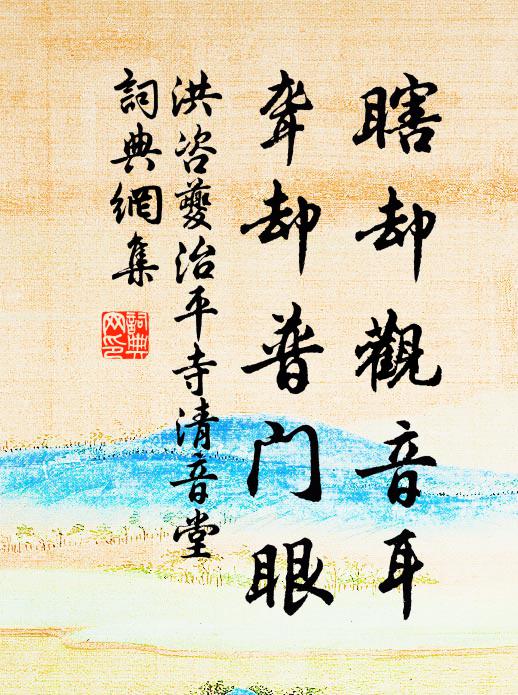 瞎却觀音耳
聋却普門眼
洪咨夔治平寺清音堂
詞典網集
詞典
网印